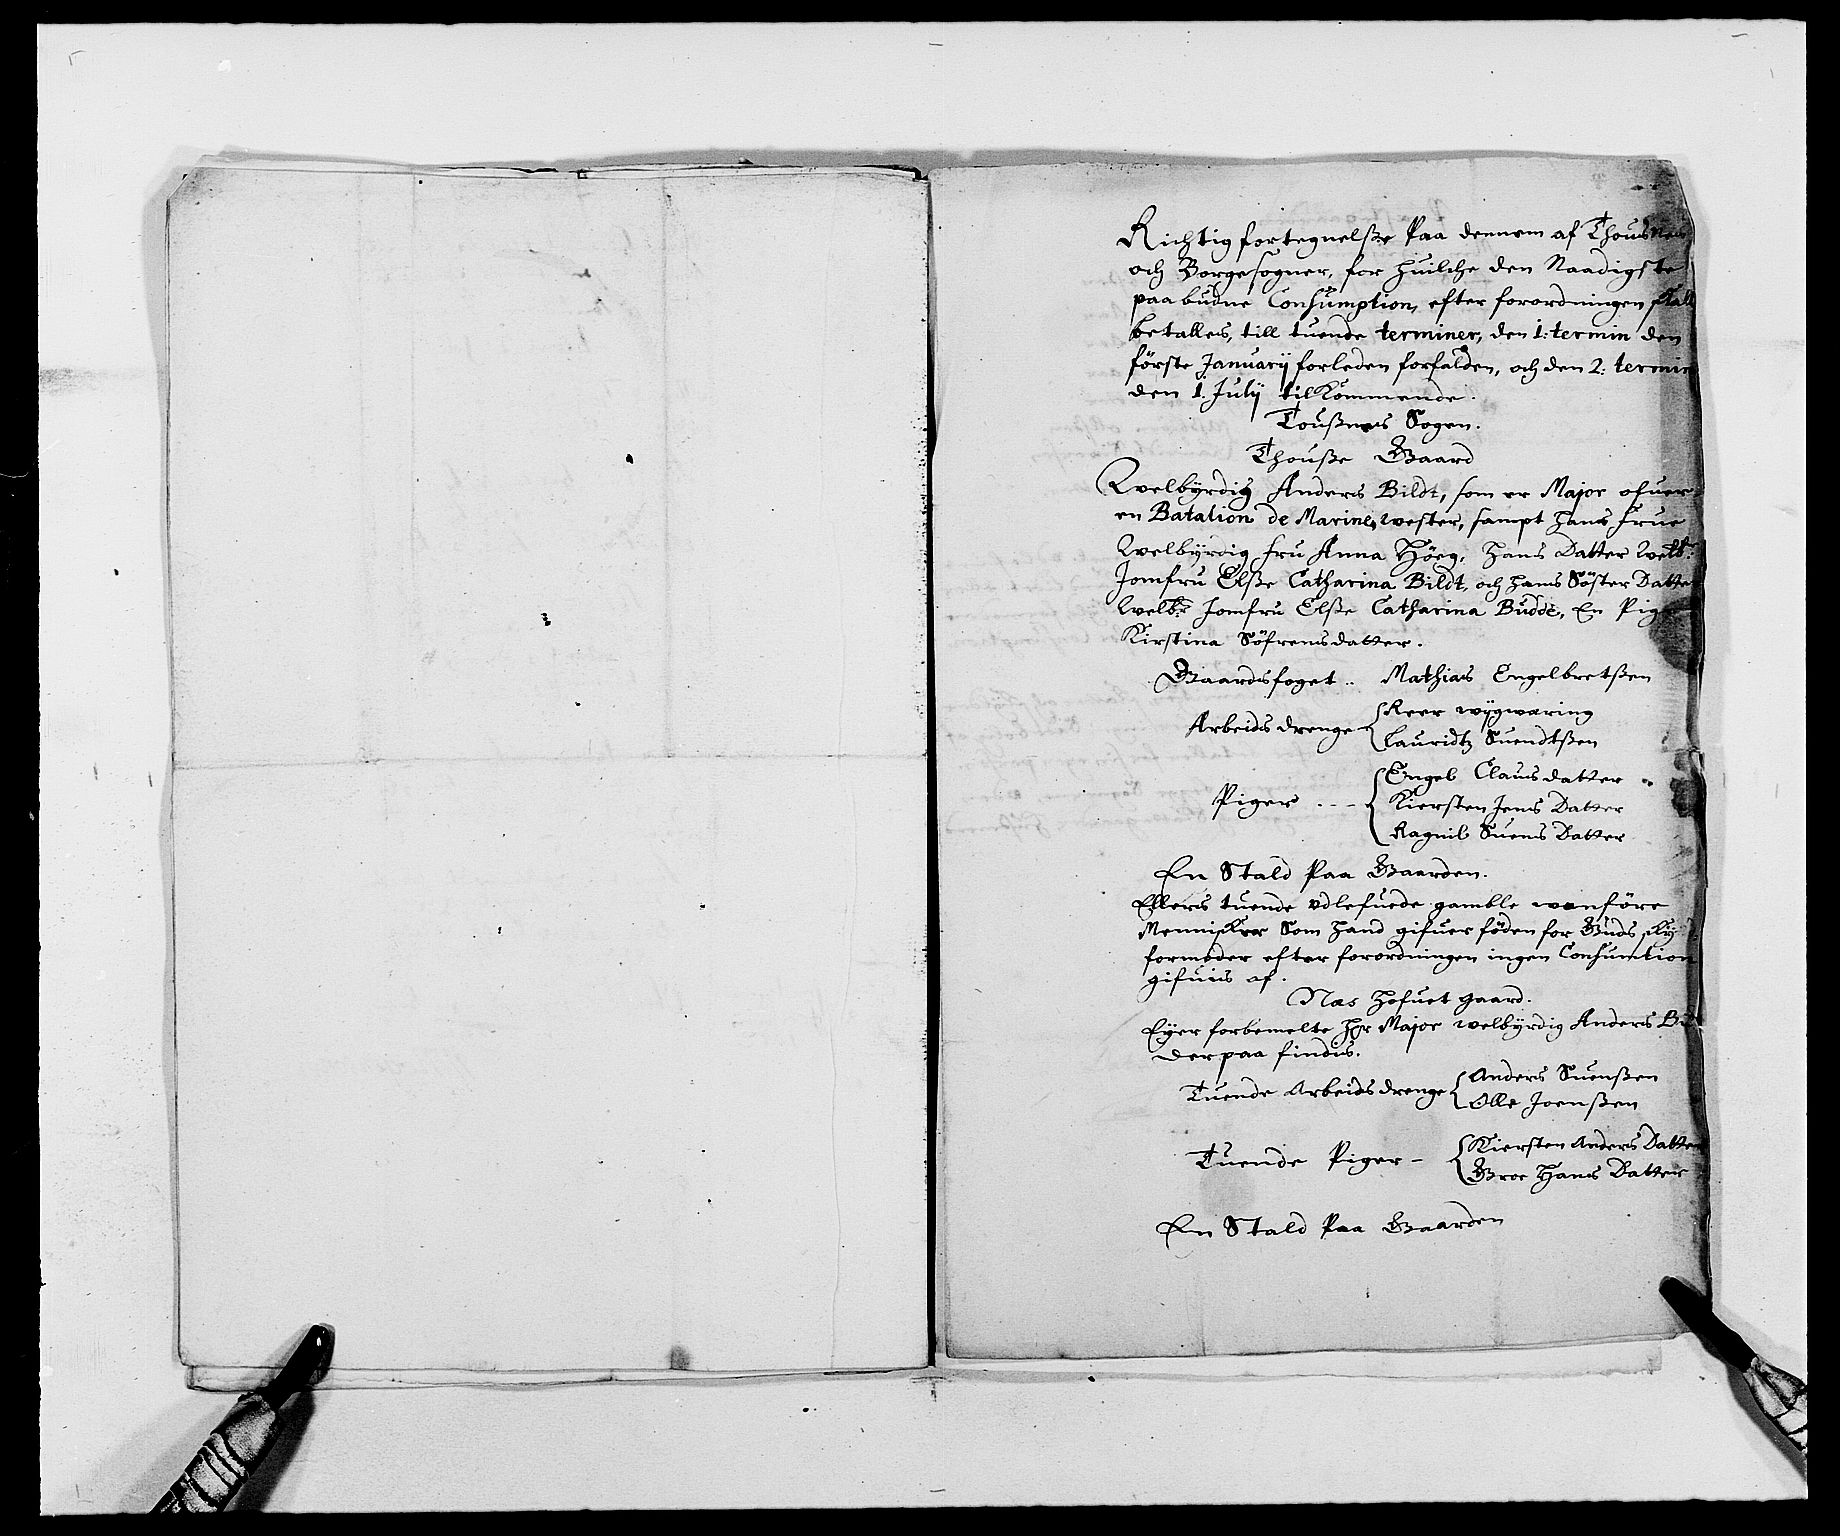 Richtig fortegnelsse Paa dennem af Thousnes
och Borgesogner, for huilche den Naadigste
paabudne Consumption, efter forordningen skall
betalles, till tuende terminer, den 1: termin den
förste Januarij forleden forfalden, och den 2: termin
den 1. Julij tilkommende.
Toussnes Sogen.
Thousse Gaard
Welbyrdig Anders Bildt, som er Major ofuer
en Batalion de Marine, wester, sampt hans frue
Welbyrdig fru Anna Höeg, hans Datter Welb:
Jomfru Elsse Catharina Bildt, och hans Söster Datter
Welb: Jomfru Elsse Catharina Budde, En Pige
Kirstina Söfrensdatter.
Gaardsfoget .. Mathias Engelbretssen
Arbeids drenge Peer wygwaring
Lauridtz Suendtssen
Engeb Claus datter
Piger . - - Kiersten Jens Datter
Ragnil Suens Datter
En Stald Paa Gaarden.
Ellers tuende udlefuede gamble wanföre
Mennisker Som hand gifuer föden for Guds sky
formoder efter forordningen ingen Consumtion
gifuis af.
Næs Hofuet gaard.
Eyer forbemelte Hr Major welbyrdig Anders Bil
der paa findis.
Tuende Arbeids drenge Anders Suenssen
Olle Joenssen
Tuende Piger - Kiersten Anders Datter
Groe Hans Datter
En Stald Paa Gaarden